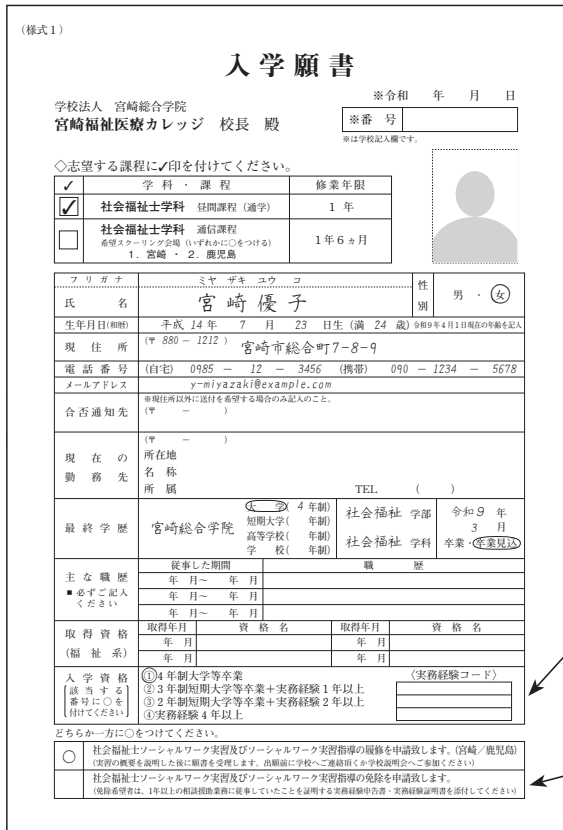 (様式1)
入学願書
※令和　年　月　日
学校法人　宮崎総合学院
宮崎福祉医療カレッジ　校長　殿
※番　号
※は学校記入欄です。
◇志望する課程に✓印を付けてください。
✓　学科・課程　修業年限
✓　社会福祉士学科　昼間課程(通学)　1年
社会福祉士学科　通信課程　1年6ヵ月
希望スクーリング会場(いずれかに○をつける)
1. 宮崎 ・ 2. 鹿児島
フリガナ　ミヤ　ザキ　ユウ　コ
氏　名　宮崎優子　性別　男・女
生年月日(和暦)　平成 14年　7　月　23　日生(満 24 歳)令和9年4月1日現在の年齢を記入
現住所　(〒 880 − 1212)　宮崎市総合町7-8-9
電話番号　(自宅)　0985 − 12 − 3456　(携帯)　090 − 1234 − 5678
メールアドレス　y-miyazaki@example.com
合否通知先　※現住所以外に送付を希望する場合のみ記入のこと。
(〒　−　)
現在の勤務先　(〒　−　)
所在地
名　称
所　属　TEL　(　)
最終学歴　宮崎総合学院　大　学(4年制)　社会福祉　学部　令和9年
短期大学(　年制)　3　月
高等学校(　年制)　社会福祉　学科　卒業・卒業見込
学　校(　年制)
主な職歴　従事した期間　職　歴
■必ずご記入ください　年　月〜　年　月
年　月〜　年　月
年　月〜　年　月
取得資格　取得年月　資格名　取得年月　資格名
(福祉系)　年　月　年　月
年　月　年　月
入学資格　①4年制大学等卒業　〈実務経験コード〉
[該当する番号に○を付けてください]　②3年制短期大学等卒業＋実務経験1年以上
③2年制短期大学等卒業＋実務経験2年以上
④実務経験4年以上
どちらか一方に○をつけてください。
○　社会福祉士ソーシャルワーク実習及びソーシャルワーク実習指導の履修を申請致します。(宮崎／鹿児島)
(実習の概要を説明した後に願書を受理します。出願前に学校へご連絡頂くか学校説明会へご参加ください)
社会福祉士ソーシャルワーク実習及びソーシャルワーク実習指導の免除を申請致します。
(免除希望者は、1年以上の相談援助業務に従事していたことを証明する実務経験申告書・実務経験証明書を添付してください)